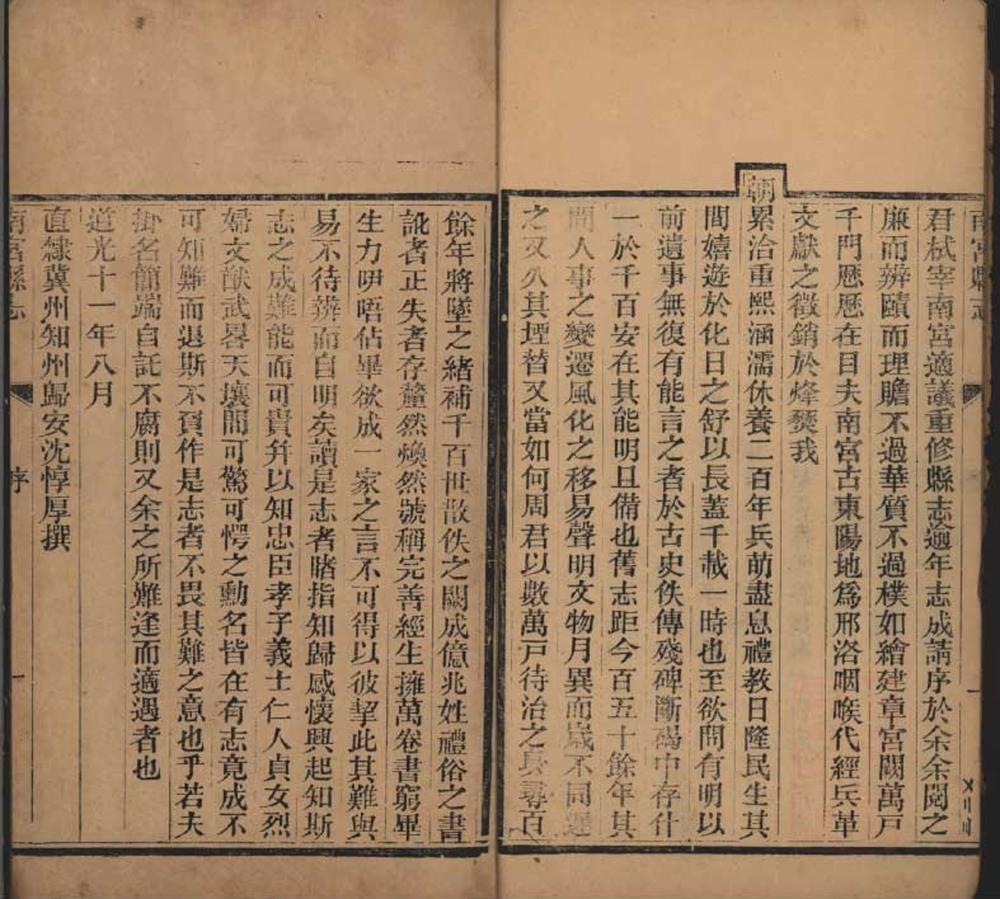 南宮縣志
君栻宰南宮適議重修縣志逾年志成請序於余余閱之
廉而辨賾而理贍不過華質不過樸如繪建章宮闕萬戶
千門歷歷在目夫南宮古東陽地為邢洛咽喉代經兵革
文獻之徵銷於烽燹我
朝累洽重熙涵濡休養二百年兵萌盡息禮教日隆民生其
間嬉遊於化日之舒以長蓋千載一時也至欲問有明以
前遺事無復有能言之者於古史佚傳殘碑斷碣中存什
一於千百安在其能明且備也舊志距今百五十餘年其
間人事之變遷風化之移易聲明文物月異而歲不同遲
之又久其堙替又當如何周君以數萬戶待治之具尋百
餘年將墜之緒補千百世散佚之闕成億兆姓禮俗之書
訛者正失者存釐然煥然號稱完善經生擁萬卷書窮畢
生力呻唔佔畢欲成一家之言不可得以彼挈此其難與
易不待辨而自明矣讀是志者睹指知歸感懷興起知斯
志之成難能而可貴并以知忠臣孝子義士仁人貞女烈
婦文猷武畧天壤間可驚可愕之勳名皆在有志竟成不
可知難而退斯不負作是志者不畏其難之意也乎若夫
掛名簡端自託不腐則又余之所難逢而適遇者也
道光十一年八月
直隸冀州知州歸安沈惇厚撰
南宮縣志
序
一